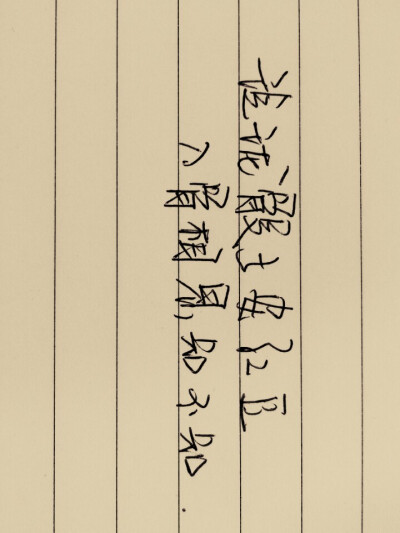 玲珑骰子安红豆
入骨相思,知不知.